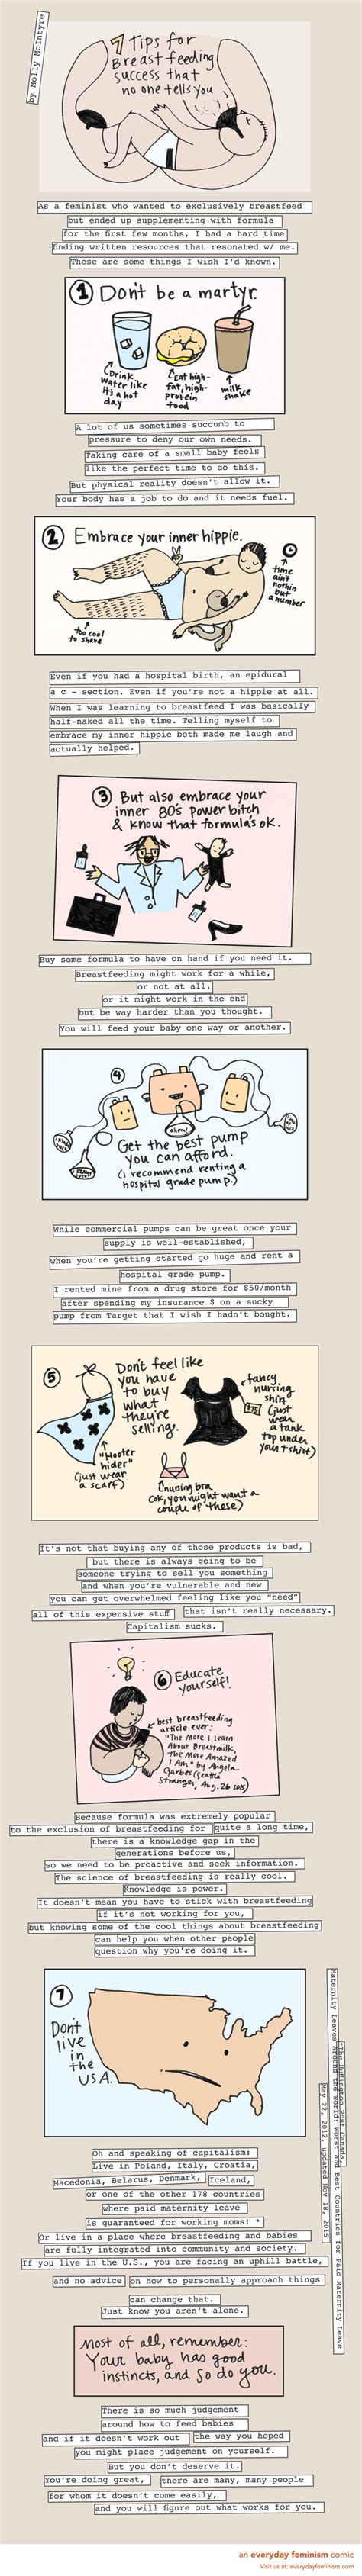 by Molly McIntyre
7 Tips for
Breastfeeding
Success that
no one tells you
As a feminist who wanted to exclusively breastfeed
but ended up supplementing with formula
for the first few months, I had a hard time
finding written resources that resonated w/ me.
These are some things I wish I'd known.
1 Don't be a martyr.
Drink
water like
it's a hot
day
Eat high-
fat, high-
protein
food
milk
shake
A lot of us sometimes succumb to
pressure to deny our own needs.
Taking care of a small baby feels
like the perfect time to do this.
But physical reality doesn't allow it.
Your body has a job to do and it needs fuel.
2 Embrace your inner hippie.
time
ain't
nothin
but
a number
too cool
to shave
Even if you had a hospital birth, an epidural
a c - section. Even if you're not a hippie at all.
When I was learning to breastfeed I was basically
half-naked all the time. Telling myself to
embrace my inner hippie both made me laugh and
actually helped.
3 But also embrace your
inner 80's power bitch
& know that formula's ok.
Buy some formula to have on hand if you need it.
Breastfeeding might work for a while,
or not at all,
or it might work in the end
but be way harder than you thought.
You will feed your baby one way or another.
4
ahem!
Get the best pump
you can afford.
(I recommend renting a
hospital grade pump.)
While commercial pumps can be great once your
supply is well-established,
when you're getting started go huge and rent a
hospital grade pump.
I rented mine from a drug store for $50/month
after spending my insurance $ on a sucky
pump from Target that I wish I hadn't bought.
5 Don't feel like
you have
to buy
what
they're
selling.
"Hooter
hider"
(just wear
a scarf)
fancy
nursing
shirt
(just
wear
a tank
top under
your tshirt)
nursing bra
(ok, you might want a
couple of these)
It's not that buying any of those products is bad,
but there is always going to be
someone trying to sell you something
and when you're vulnerable and new
you can get overwhelmed feeling like you "need"
all of this expensive stuff that isn't really necessary.
Capitalism sucks.
6 Educate
yourself!
best breastfeeding
article ever:
"The More I learn
About Breastmilk,
the More Amazed
I Am" by Angela
Garbes (Seattle
Stranger, Aug. 26 2015)
Because formula was extremely popular
to the exclusion of breastfeeding for quite a long time,
there is a knowledge gap in the
generations before us,
so we need to be proactive and seek information.
The science of breastfeeding is really cool.
Knowledge is power.
It doesn't mean you have to stick with breastfeeding
if it's not working for you,
but knowing some of the cool things about breastfeeding
can help you when other people
question why you're doing it.
7
Don't
live
in
the
USA.
*The Huffington Post Canada,
Maternity Leaves Around the World: Worst and Best Countries for Paid Maternity Leave
May 22, 2012, updated Nov 18, 2015
Oh and speaking of capitalism:
Live in Poland, Italy, Croatia,
Macedonia, Belarus, Denmark, Iceland,
or one of the other 178 countries
where paid maternity leave
is guaranteed for working moms! *
Or live in a place where breastfeeding and babies
are fully integrated into community and society.
If you live in the U.S., you are facing an uphill battle,
and no advice on how to personally approach things
can change that.
Just know you aren't alone.
Most of all, remember:
Your baby has good
instincts, and so do you.
There is so much judgement
around how to feed babies
and if it doesn't work out the way you hoped
you might place judgement on yourself.
But you don't deserve it.
You're doing great, there are many, many people
for whom it doesn't come easily,
and you will figure out what works for you.
an everyday feminism comic
Visit us at: everydayfeminism.com